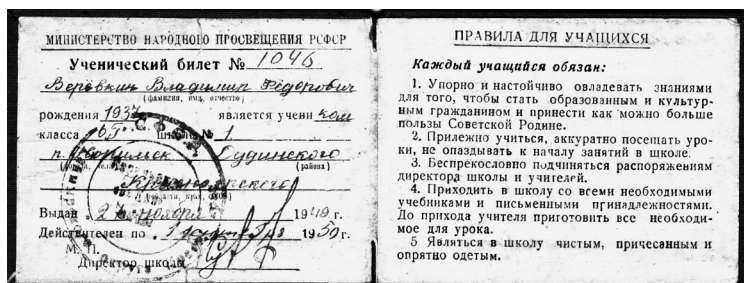 МИНИСТЕРСТВО НАРОДНОГО ПРОСВЕЩЕНИЯ РСФСР
Ученический билет № 1046
Веревкин Владимир Фёдорович
(фамилия, имя, отчество)
рождения 1937 является учени ком
класса 6 школы № 1
п. Норильск Дудинского
(района)
Красноярского
Выдан „27 ноября 1949 г.
Действителен по „1 1950 г.
М. П.
Директор школы
ПРАВИЛА ДЛЯ УЧАЩИХСЯ
Каждый учащийся обязан:
1. Упорно и настойчиво овладевать знаниями
для того, чтобы стать образованным и культур-
ным гражданином и принести как можно больше
пользы Советской Родине.
2. Прилежно учиться, аккуратно посещать уро-
ки, не опаздывать к началу занятий в школе.
3. Беспрекословно подчиняться распоряжениям
директора школы и учителей.
4. Приходить в школу со всеми необходимыми
учебниками и письменными принадлежностями.
До прихода учителя приготовить все необходи-
мое для урока.
5 Являться в школу чистым, причесанным и
опрятно одетым.